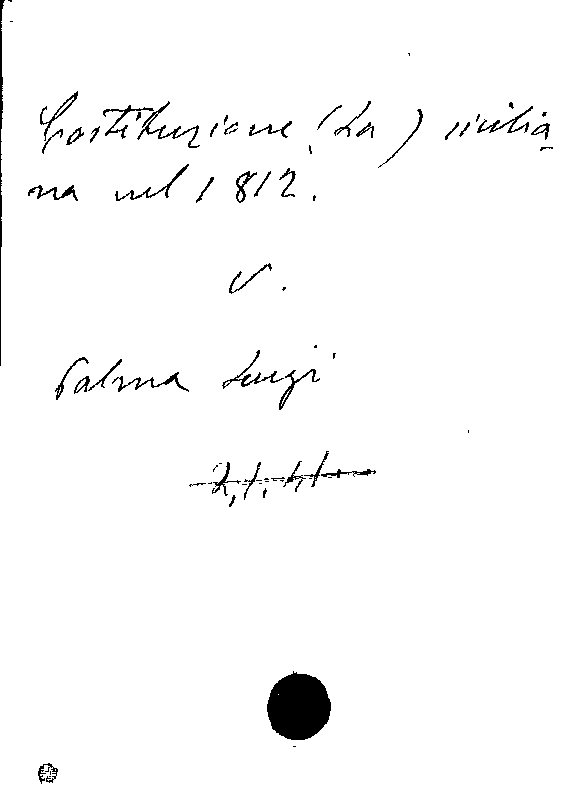 Costituzione (La) sicilia
na nel 1812.
V.
Palma Luigi